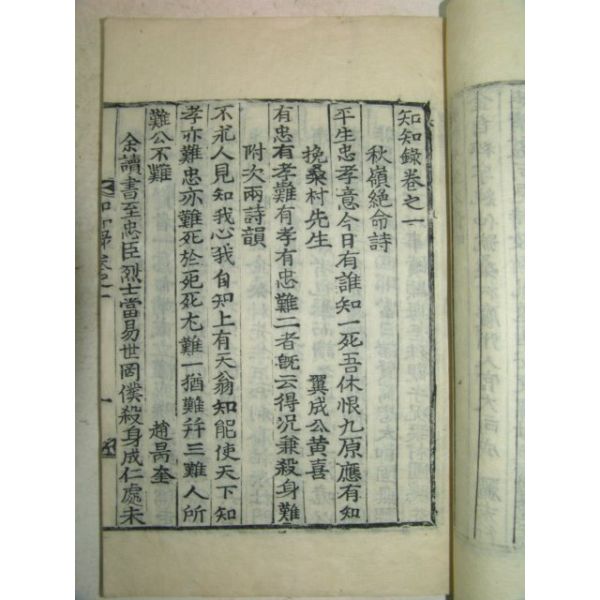 知知錄卷之一
秋嶺絶命詩
平生忠孝意今日有誰知一死吾休恨九原應有知
挽桑村先生 翼成公黃喜
有忠有孝難有孝有忠難二者旣云得況兼殺身難
附次兩詩韻
不求人見知我心我自知上有天翁知能使天下知
孝亦難忠亦難死於死死尤難一猶難幷三難人所
難公不難 趙昺奎
余讀書至忠臣烈士當易世罔僕殺身成仁處未